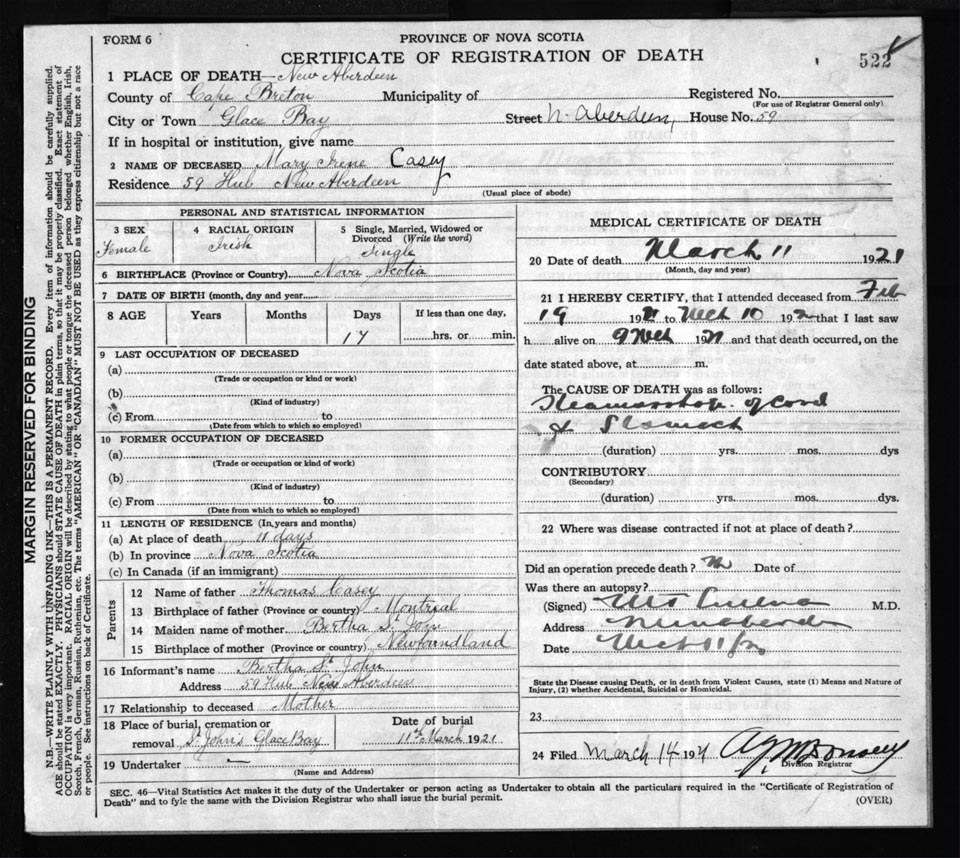 FORM 6
PROVINCE OF NOVA SCOTIA
CERTIFICATE OF REGISTRATION OF DEATH
522
1 PLACE OF DEATH—New Aberdeen
County of Cape Breton Municipality of Registered No.
(For use of Registrar General only)
City or Town Glace Bay Street N. Aberdeen, House No. 59
If in hospital or institution, give name
2 NAME OF DECEASED Mary Irene Casey
Residence 59 Hub New Aberdeen
(Usual place of abode)
PERSONAL AND STATISTICAL INFORMATION
3 SEX Female
4 RACIAL ORIGIN Irish
5 Single, Married, Widowed or Divorced (Write the word) Single
6 BIRTHPLACE (Province or Country) Nova Scotia
7 DATE OF BIRTH (month, day and year
8 AGE Years Months Days If less than one day,
17 hrs. or min.
9 LAST OCCUPATION OF DECEASED
(a)
(Trade or occupation or kind or work)
(b)
(Kind of industry)
(c) From to
(Date from which to which so employed)
10 FORMER OCCUPATION OF DECEASED
(a)
(Trade or occupation or kind of work)
(b)
(Kind of industry)
(c) From to
(Date from which to which so employed)
11 LENGTH OF RESIDENCE (In, years and months)
(a) At place of death 11 days
(b) In province Nova Scotia
(c) In Canada (if an immigrant)
Parents
12 Name of father Thomas Casey
13 Birthplace of father (Province or country) Montreal
14 Maiden name of mother Bertha St John
15 Birthplace of mother (Province or country) Newfoundland
16 Informant's name Bertha St John
Address 59 Hub New Aberdeen
17 Relationship to deceased Mother
18 Place of burial, cremation or removal St John's Glace Bay
Date of burial 11th March 1921
19 Undertaker —
(Name and Address)
MEDICAL CERTIFICATE OF DEATH
20 Date of death March 11 1921
(Month, day and year)
21 I HEREBY CERTIFY, that I attended deceased from Feb
19 1921 to Mch 10 192 that I last saw
h alive on 9 Mch 1921 and that death occurred, on the
date stated above, at m.
The CAUSE OF DEATH was as follows:
of cord
& Stomach
(duration) yrs. mos. dys
CONTRIBUTORY
(Secondary)
(duration) yrs. mos. dys.
22 Where was disease contracted if not at place of death?
Did an operation precede death? No Date of
Was there an autopsy?
(Signed) M.D.
Address
Date Mch 11
State the Disease causing Death, or in death from Violent Causes, state (1) Means and Nature of
Injury, (2) whether Accidental, Suicidal or Homicidal.
23
24 Filed March 14 1921
Division Registrar
SEC. 46—Vital Statistics Act makes it the duty of the Undertaker or person acting as Undertaker to obtain all the particulars required in the "Certificate of Registration of
Death" and to fyle the same with the Division Registrar who shall issue the burial permit.
(OVER)
MARGIN RESERVED FOR BINDING
N.B.—WRITE PLAINLY WITH UNFADING INK—THIS IS A PERMANENT RECORD. Every item of information should be carefully supplied.
AGE should be stated EXACTLY. PHYSICIANS should STATE CAUSE OF DEATH in plain terms, so that it may be properly classified. Exact statement of
OCCUPATION is very important. RACIAL ORIGIN will be described by stating to what people or tongue the deceased person belonged whether English, Irish,
Scotch, French, German, Russian, Ruthenian, etc. The terms "AMERICAN" OR "CANADIAN" MUST NOT BE USED as they express citizenship but not a race
or people. See instructions on back of Certificate.